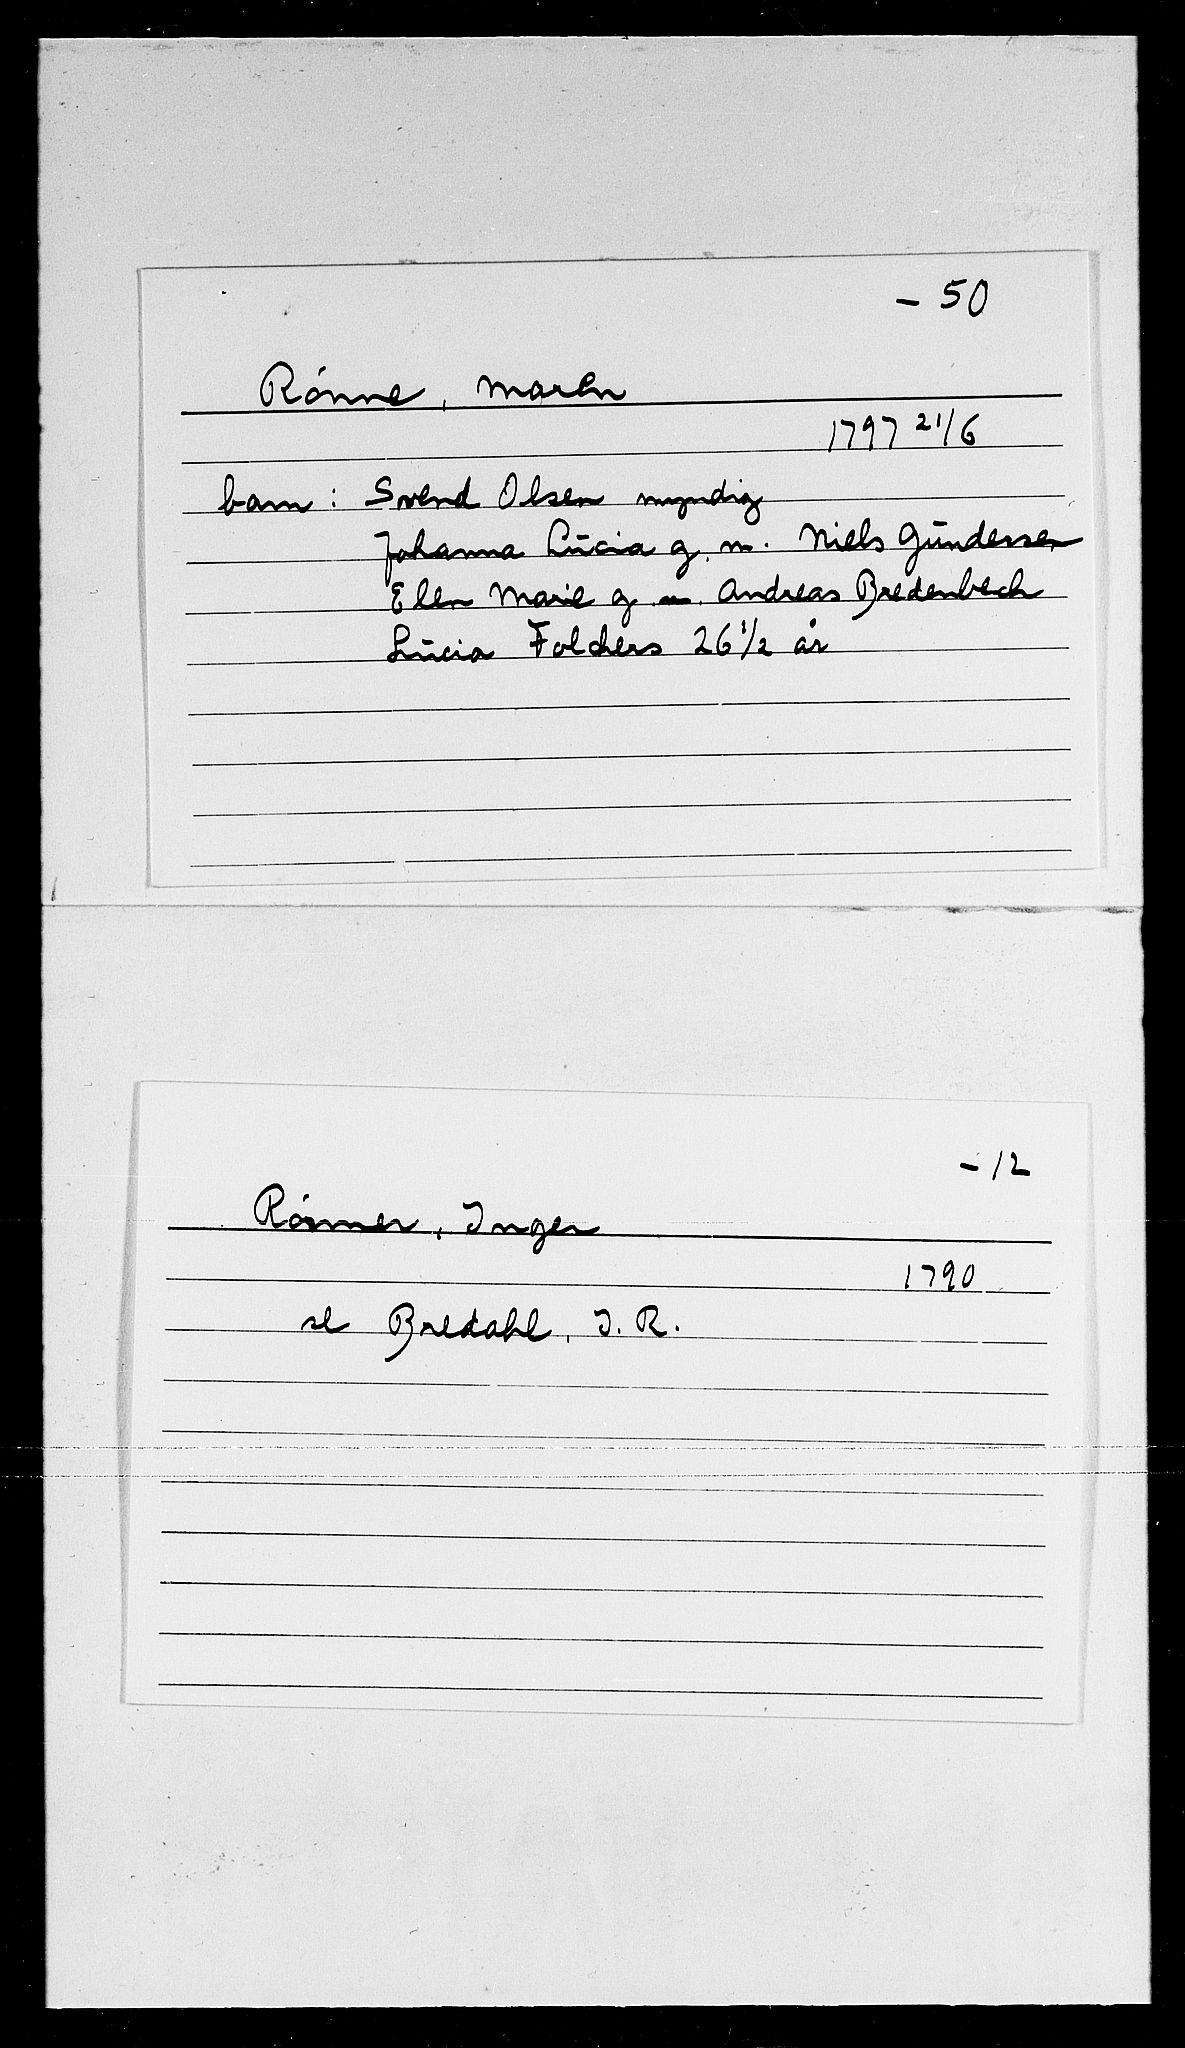 - 50
Rónne, Maren
1797 21/6
barn : Svend Olsen myndig
Johanna Lūcia g. m. Niels Gūndersen
Elen Marie g. m. Andreas Bredenbech
Lūcia Folchers 26 1/2 år
- 12
Rómer, Inger
1790
se Bredahl, I. R.